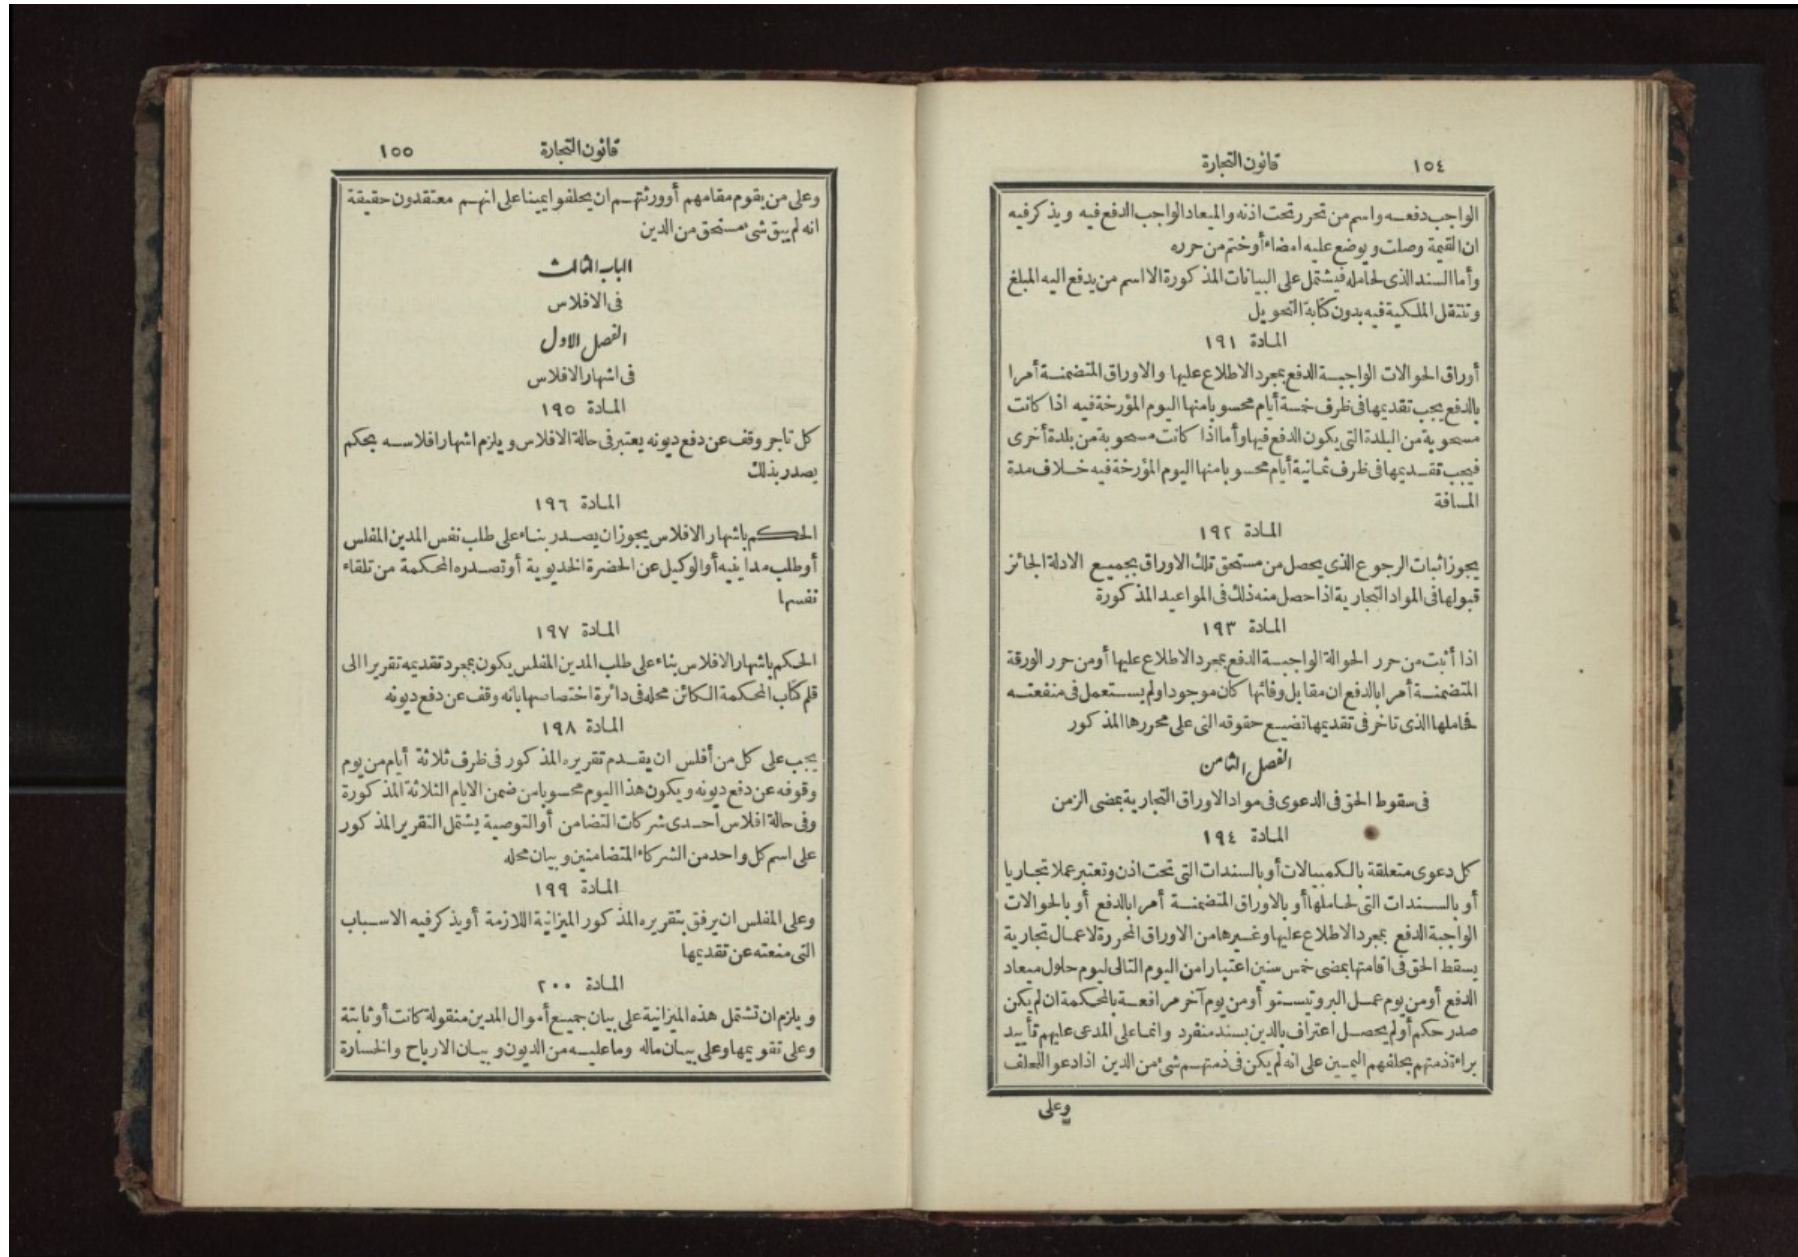 ١٥٤
قانون التجارة
الواجب دفعه واسم من تحرر تحت اذنه والميعاد الواجب الدفع فيه ويذكر فيه
ان القيمة وصلت ويوضع عليه امضاء أو ختم من حرره
وأما السند الذى لحامله فيشتمل على البيانات المذكورة الا اسم من يدفع اليه المبلغ
وتنتقل الملكية فيه بدون كتابة التحويل
المادة ١٩١
أوراق الحوالات الواجبة الدفع بمجرد الاطلاع عليها والاوراق المتضمنة أمرا
بالدفع يجب تقديمها فى ظرف خمسة أيام محسوبا منها اليوم المؤرخة فيه اذا كانت
مسحوبة من البلدة التى يكون الدفع فيها وأما اذا كانت مسحوبة من بلدة أخرى
فيجب تقديمها فى ظرف ثمانية أيام محسوبا منها اليوم المؤرخة فيه خلاف مدة
المسافة
المادة ١٩٢
يجوز اثبات الرجوع الذى يحصل من مستحق تلك الاوراق بجميع الادلة الجائز
قبولها فى المواد التجارية اذا حصل منه ذلك فى المواعيد المذكورة
المادة ١٩٣
اذا أثبت من حرر الحوالة الواجبة الدفع بمجرد الاطلاع عليها أو من حرر الورقة
المتضمنة أمرا بالدفع ان مقابل وفائها كان موجودا ولم يستعمل فى منفعته
فحاملها الذى تاخر فى تقديمها تضيع حقوقه التى على محررها المذكور
الفصل الثامن
فى سقوط الحق فى الدعوى فى مواد الاوراق التجارية بمضى الزمن
المادة ١٩٤
كل دعوى متعلقة بالكمبيالات أو بالسندات التى تحت اذن وتعتبر عملا تجاريا
أو بالسندات التى لحاملها أو بالاوراق المتضمنة أمرا بالدفع أو بالحوالات
الواجبة الدفع بمجرد الاطلاع عليها وغيرها من الاوراق المحررة لاعمال تجارية
يسقط الحق فى اقامتها بمضى خمس سنين اعتبارا من اليوم التالى ليوم حلول ميعاد
الدفع أو من يوم عمل البروتيستو أو من يوم آخر مرافعة بالمحكمة ان لم يكن
صدر حكم أو لم يحصل اعتراف بالدين بسند منفرد وانما على المدعى عليهم تأييد
براءة ذمتهم بحلفهم اليمين على انه لم يكن فى ذمتهم شئ من الدين اذا دعوا للحلف
وعلى
قانون التجارة
١٥٥
وعلى من يقوم مقامهم أو ورثتهم ان يحلفوا يمينا على انهم معتقدون حقيقة
انه لم يبق شئ مستحق من الدين
الباب الثالث
فى الافلاس
الفصل الاول
فى اشهار الافلاس
المادة ١٩٥
كل تاجر وقف عن دفع ديونه يعتبر فى حالة الافلاس ويلزم اشهار افلاسه بحكم
يصدر بذلك
المادة ١٩٦
الحكم باشهار الافلاس يجوز ان يصدر بناء على طلب نفس المدين المفلس
أو طلب مداينيه أو الوكيل عن الحضرة الخديوية أو تصدره المحكمة من تلقاء
نفسها
المادة ١٩٧
الحكم باشهار الافلاس بناء على طلب المدين المفلس يكون بمجرد تقديمه تقريرا الى
قلم كتاب المحكمة الكائن محله فى دائرة اختصاصها بانه وقف عن دفع ديونه
المادة ١٩٨
يجب على كل من أفلس ان يقدم تقريره المذكور فى ظرف ثلاثة أيام من يوم
وقوفه عن دفع ديونه ويكون هذا اليوم محسوبا من ضمن الايام الثلاثة المذكورة
وفى حالة افلاس احدى شركات التضامن أو التوصية يشتمل التقرير المذكور
على اسم كل واحد من الشركاء المتضامنين وبيان محله
المادة ١٩٩
وعلى المفلس ان يرفق بتقريره المذكور الميزانية اللازمة أو يذكر فيه الاسباب
التى منعته عن تقديمها
المادة ٢٠٠
ويلزم ان تشتمل هذه الميزانية على بيان جميع أموال المدين منقولة كانت أو ثابتة
وعلى تقويمها وعلى بيان ماله وما عليه من الديون وبيان الارباح والخسارة